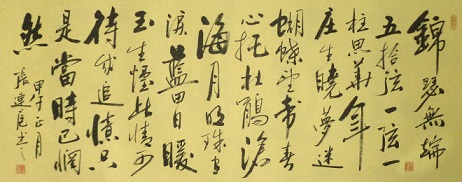 錦瑟無端
五拾弦一弦一
柱思華年
庄生曉夢迷
蝴蝶望帝春
心托杜鵑滄
海月明珠有
淚藍田日暖
玉生煙此情可
待成追憶只
是當時已惘
然
甲午正月
張連